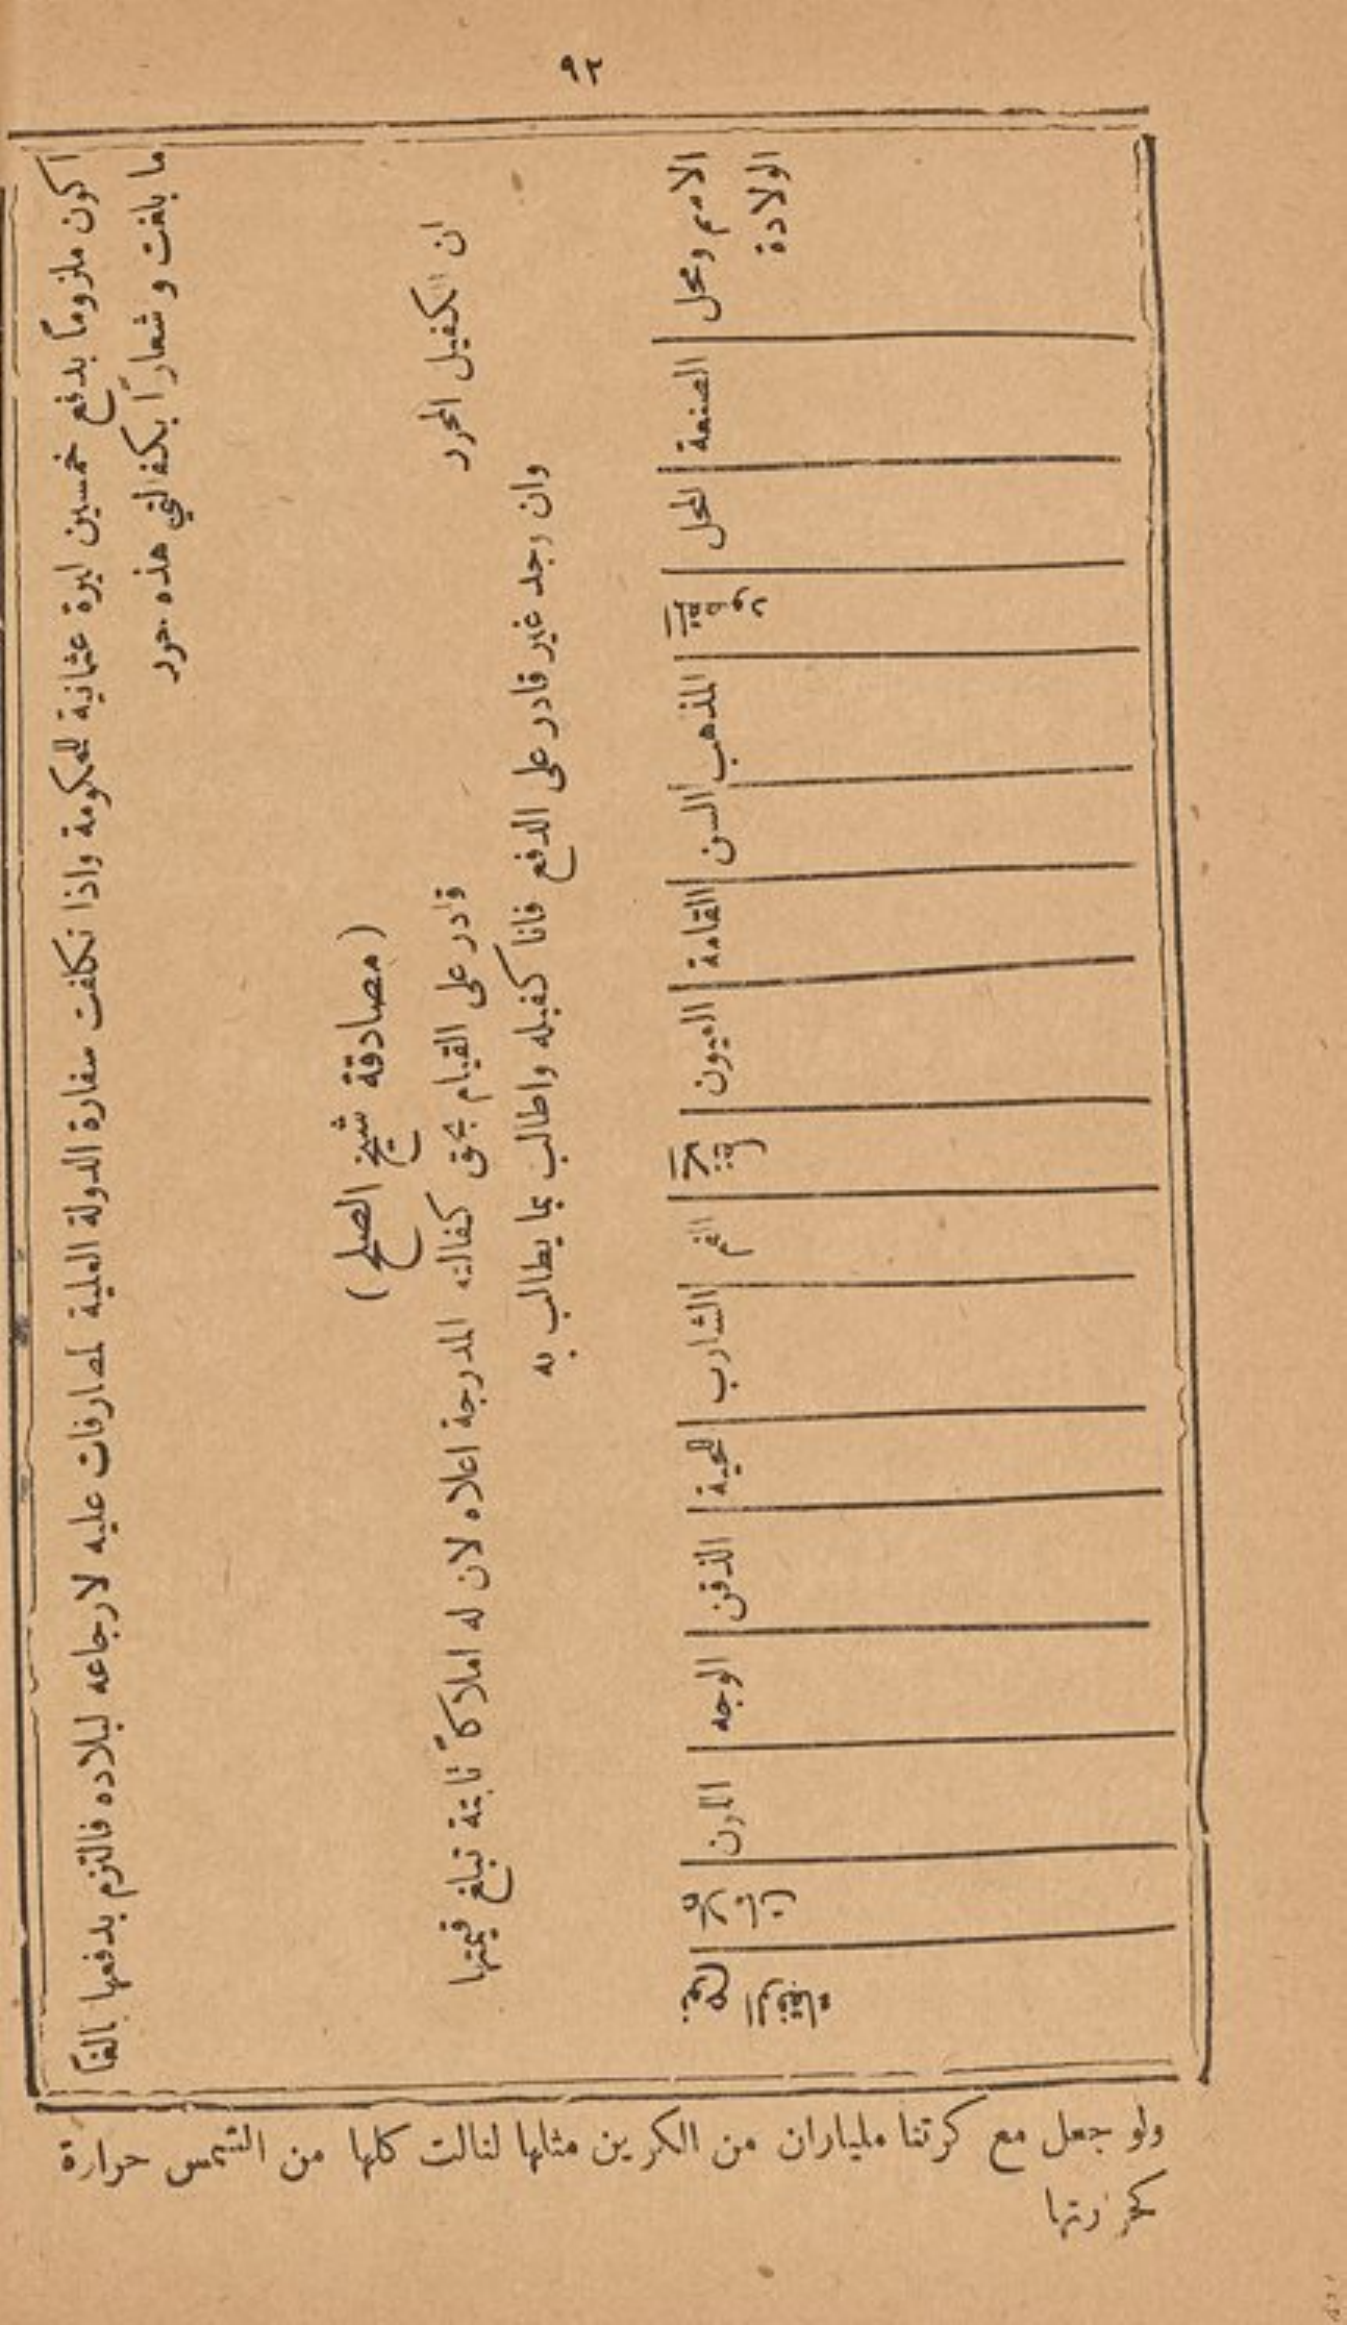 ٩٢
اكون ملزوماً بدفع خمسين ليرة عثمانية للحكومة واذا تكلفت سفارة الدولة العلية لمصارفات عليه لارجاعه لبلاده فالتزم بدفعها بالغاً
ما بلغت وشعاراً بكفالتي هذه حرر
ان الكفيل المحرر
(مصادقة شيخ الصلح)
قادر على القيام بحق كفالته المدرجة اعلاه لان له املاكاً ثابتة تبلغ قيمتها
وان وجد غير قادر على الدفع فانا كفيله واطالب بما يطالب به
الاسم ومحل الولادة
الصنعة
المحل
المذهب
السن
القامة
العيون
الفم
الشارب
اللحية
الذقن
الوجه
اللون
ولو جعل مع كرتنا ملياران من الكرين مثلها لنالت كلها من الشمس حرارة
كحرارتها